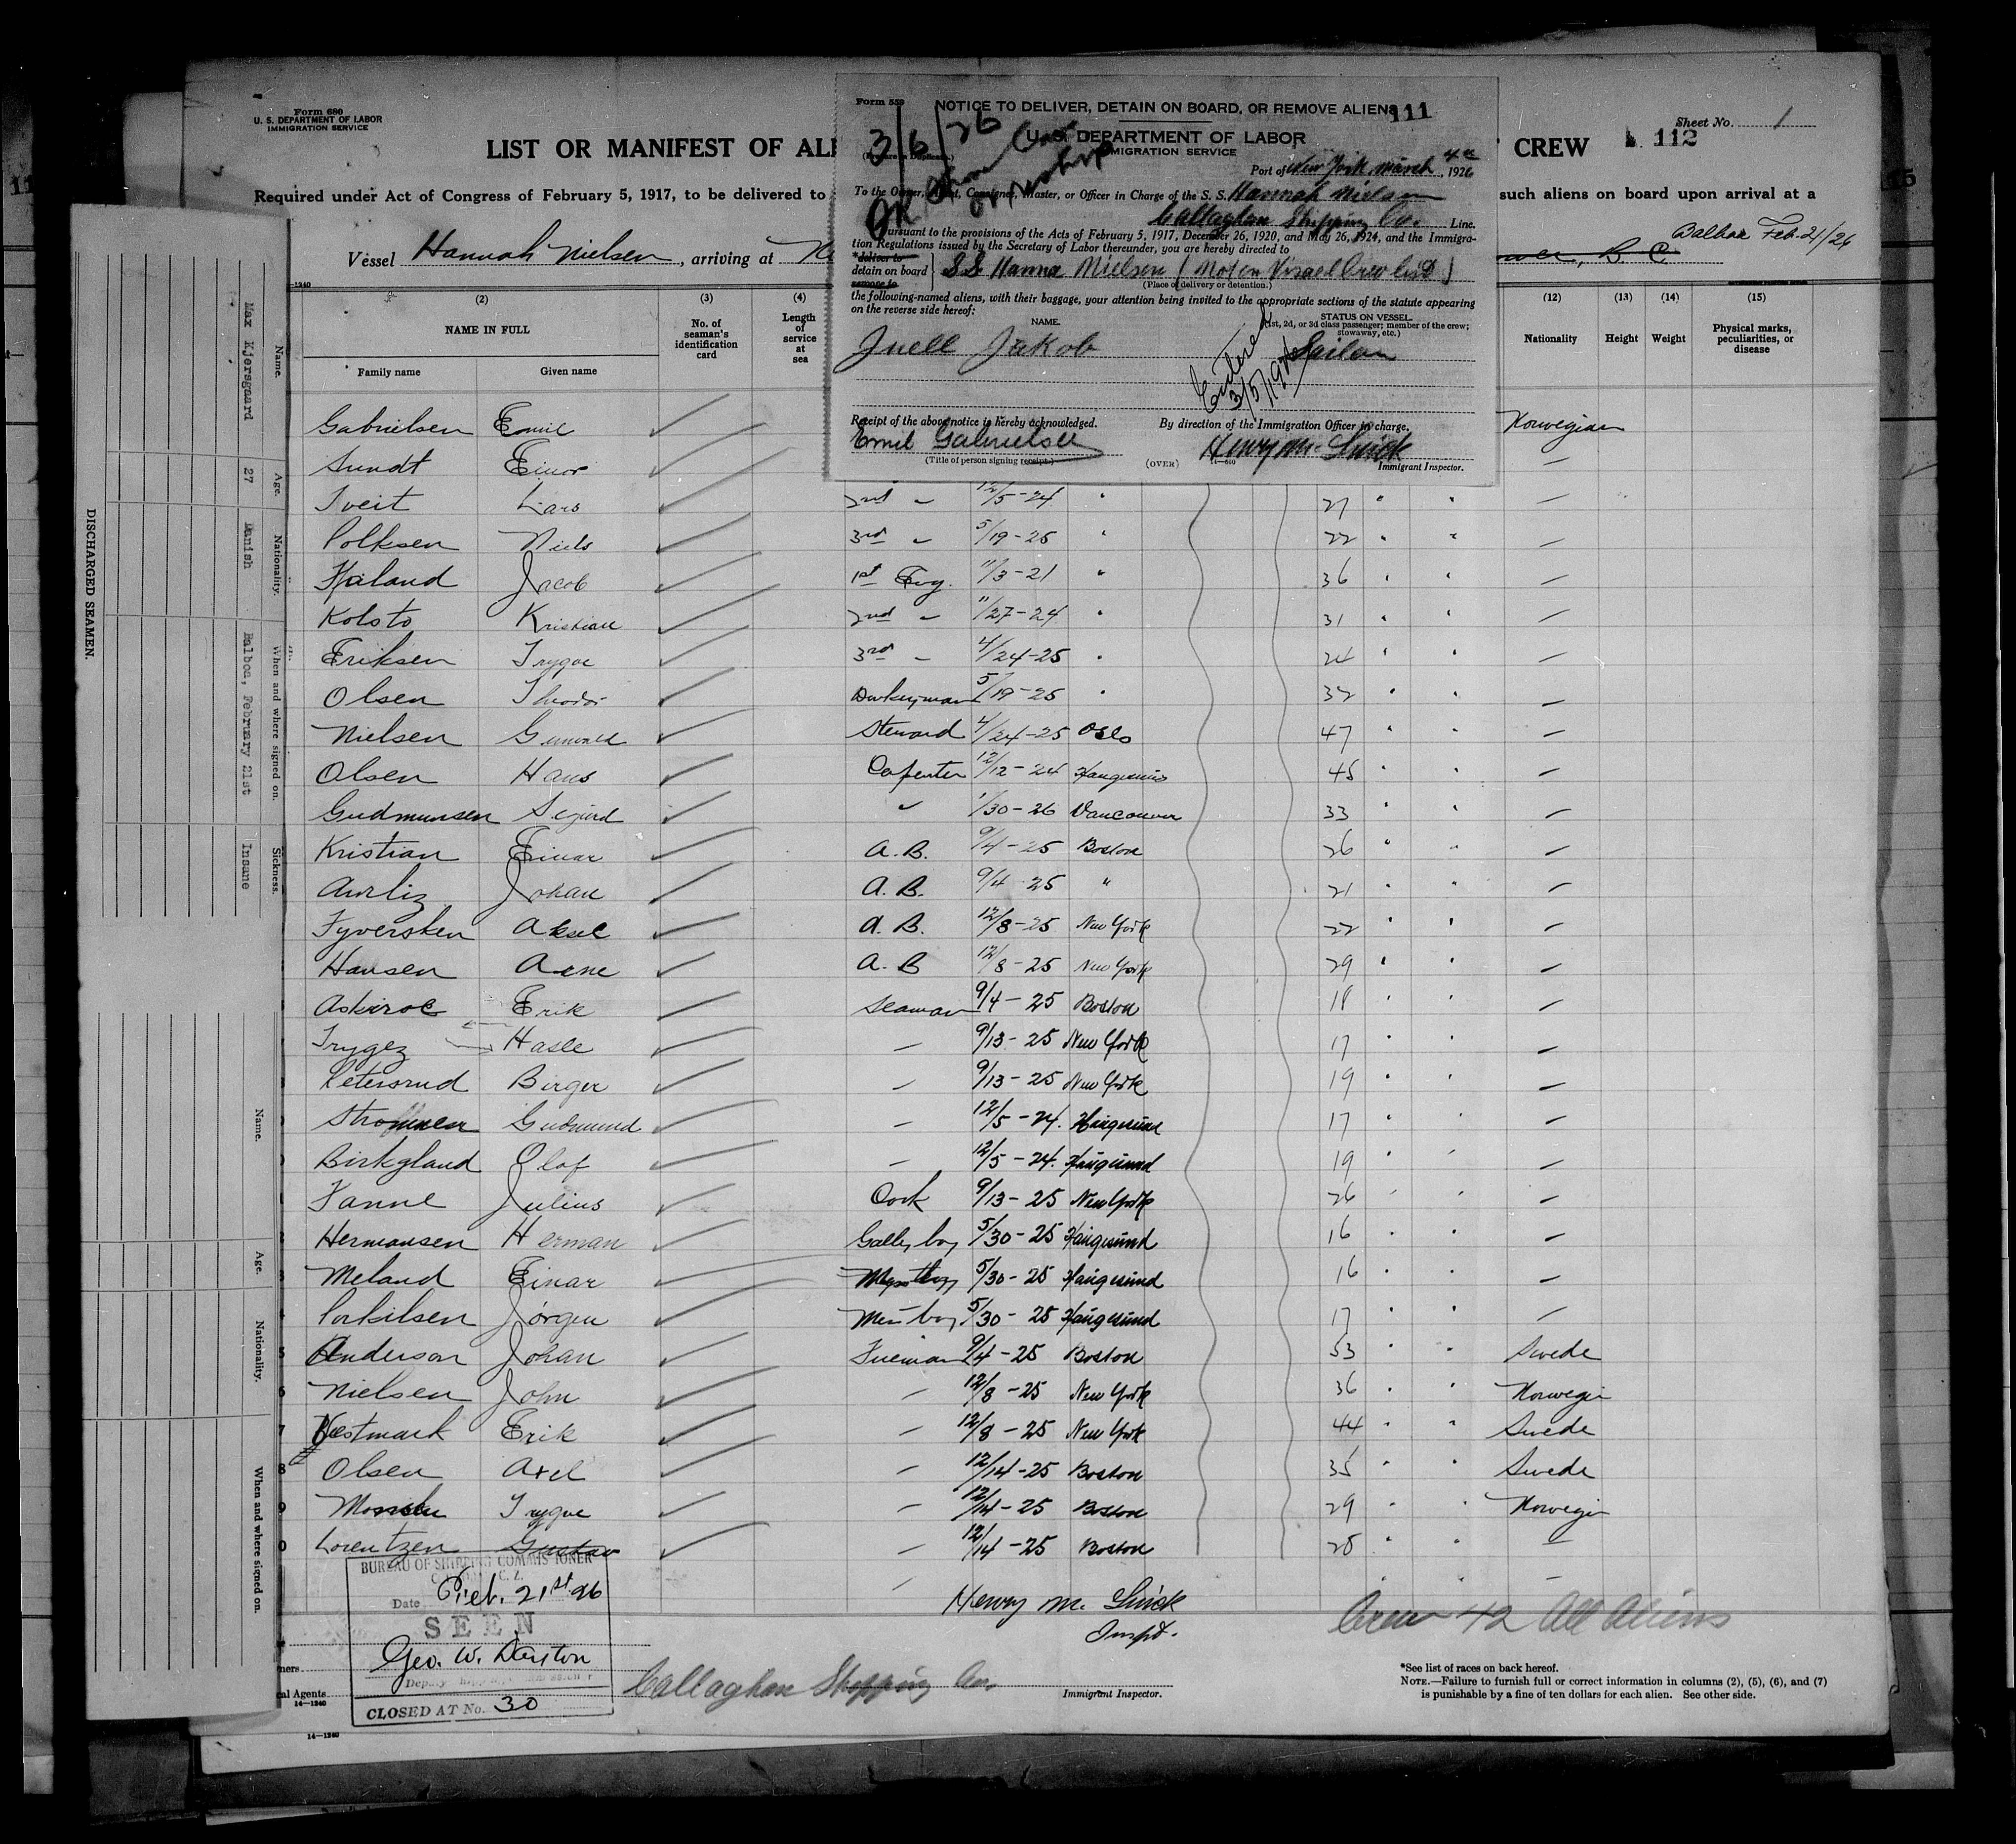 Form 680
U. S. DEPARTMENT OF LABOR
IMMIGRATION SERVICE
LIST OR MANIFEST OF ALI
CREW
Sheet No. 1
112
Required under Act of Congress of February 5, 1917, to be delivered to
such aliens on board upon arrival at a
Vessel Hannah Nielsen, arriving at
Balboa Feb. 21/26
B C
Form 559
NOTICE TO DELIVER, DETAIN ON BOARD, OR REMOVE ALIENS
111
3/6/26
U. S. DEPARTMENT OF LABOR
IMMIGRATION SERVICE
Port of New York, March 4th, 1926
To the Owner, Agent, Consignee, Master, or Officer in Charge of the S. S. Hannah Nielsen
OK
Callaghan Shipping Co. Line.
Pursuant to the provisions of the Acts of February 5, 1917, December 26, 1920, and May 26, 1924, and the Immigra-
tion Regulations issued by the Secretary of Labor thereunder, you are hereby directed to
*deliver to
detain on board
remove to
SS Hanna Nielsen (Not on Visaed Crew List)
(Place of delivery or detention.)
the following-named aliens, with their baggage, your attention being invited to the appropriate sections of the statute appearing
on the reverse side hereof:
NAME.
STATUS ON VESSEL.
(1st, 2d, or 3d class passenger; member of the crew;
stowaway, etc.)
Juell Jakob Sailor
3/5/1926
Receipt of the above notice is hereby acknowledged.
By direction of the Immigration Officer in charge.
Emil Gabrielsen
Henry M.
(Title of person signing receipt.)
(OVER)
Immigrant Inspector.
(2) (3) (4) (12) (13) (14) (15)
NAME IN FULL
Family name Given name
No. of
seaman's
identification
card
Length
of
service
at
sea
Nationality Height Weight
Physical marks,
peculiarities, or
disease
Gabrielsen Emil Norwegian
Sundt Einar
Tveit Lars 2nd 12/5-24 27
Niels 3rd 5/19-25 22
Haland Jacob 1st Eng. 11/3-21 36
Kolsto Kristian 2nd 11/27-24 31
Eriksen Trygve 3rd 4/24-25 24
Olsen Theodor Donkeyman 5/19-25 32
Nielsen Gunvald Steward 4/24-25 Oslo 47
Olsen Hans Carpenter 12/12-24 Haugesund 45
Gudmunsen Sigurd 1/30-26 Vancouver 33
Kristian Einar A. B. 9/4-25 Boston 26
Johan A. B. 9/4 25 " 21
Aksel A. B. 12/8-25 New York 22
Hansen Arne A. B 12/8-25 New York 29
Erik Seaman 9/4-25 Boston 18
Hasle 9/13-25 New York 17
Petersrud Birger 9/13-25 New York 19
Gudmund 12/5-24. Haugesund 17
Birkeland Olaf 12/5-24. Haugesund 19
Fanne Julius Cook 9/13-25 New York 26
Hermansen Herman Galley boy 5/30-25 Haugesund 16
Meland Einar Mess boy 5/30-25 Haugesund 16
Jørgen Mess boy 5/30-25 Haugesund 17
Anderson Johan Fireman 9/4-25 Boston 53 Swede
Nielsen John 12/8-25 New York 36 Norwegin
Vestmark Erik 12/8-25 New York 44 Swede
Olsen Axel 12/14-25 Boston 35 Swede
Trygve 12/14-25 Boston 29 Norwegin
Lorentzen Gustav 12/14-25 Boston 28
BUREAU OF SHIPPING COMMISSIONER
C. Z.
Date Feb. 21st 26
SEEN
Geo. W.
Deputy
CLOSED AT No. 30
Henry M.
Inspt.
Crew 42 All Aliens
Callaghan Shipping Co.
Immigrant Inspector.
al Agents
14—1240
14—1240
*See list of races on back hereof.
NOTE.—Failure to furnish full or correct information in columns (2), (5), (6), and (7)
is punishable by a fine of ten dollars for each alien. See other side.
DISCHARGED SEAMEN.
Name. Age. Nationality. When and where signed on. Sickness.
Max Kjersgaard 27 Danish Balboa, February 21st Insane
Name. Age. Nationality. When and where signed on.